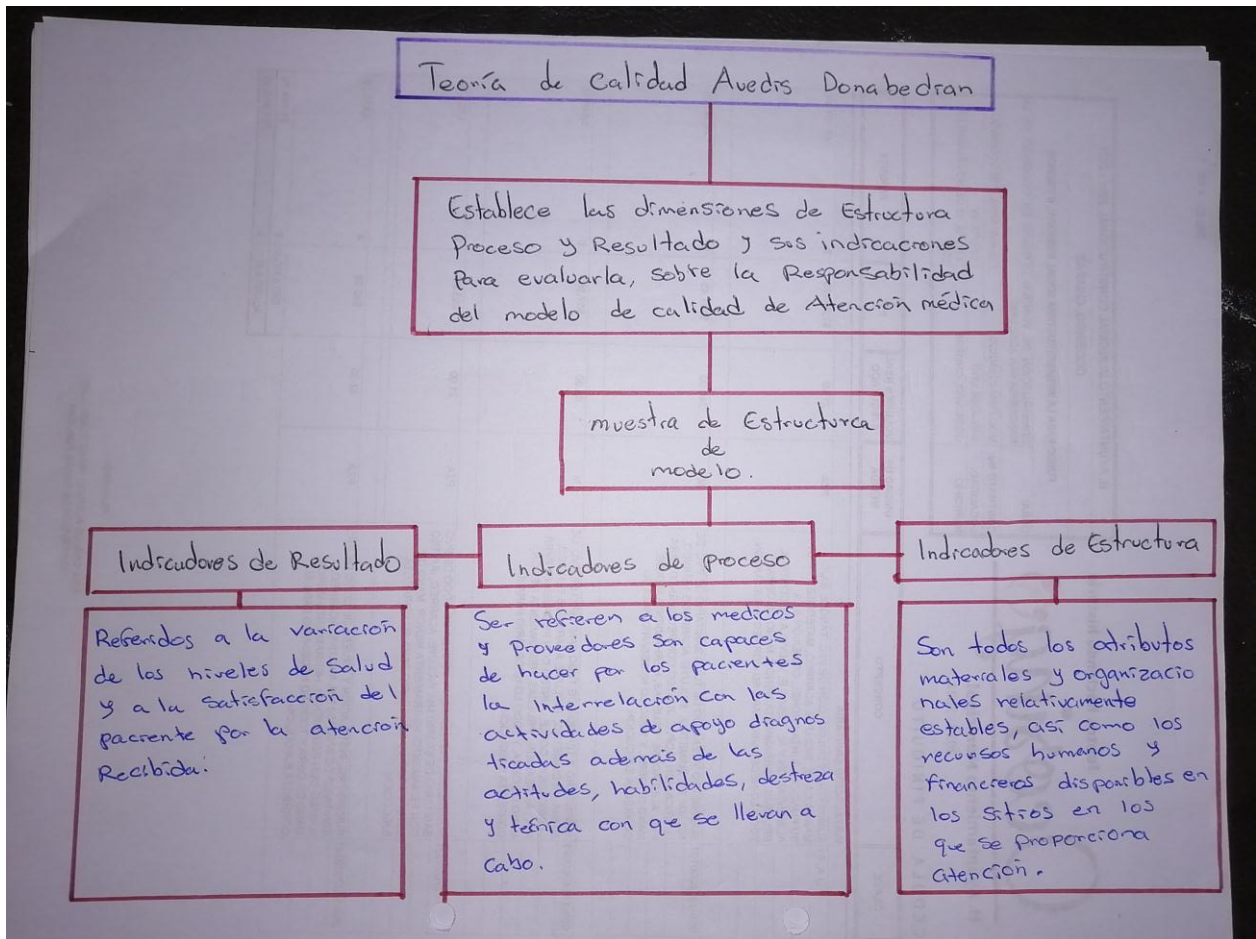 Teoría de Calidad Avedis Donabedian
Establece las dimensiones de Estructura
Proceso y Resultado y sus indicaciones
Para evaluarla, sobre la Responsabilidad
del modelo de calidad de Atención médica
muestra de Estructurca
de
modelo.
Indicadores de Resultado
Referidos a la variación
de los niveles de Salud
y a la Satisfacción del
paciente por la atención
Recibida.
Indicadores de proceso
Ser refieren a los medicos
y Proveedores son capaces
de hacer por los pacientes
la Interrelación con las
actividades de apoyo diagnos
ticadas además de las
actitudes, habilidades, destreza
y técnica con que se llevan a
Cabo.
Indicadores de Estructura
Son todos los atributos
materiales y organizacio
nales relativamente
estables, así como los
recursos humanos y
financieros disponibles en
los sitios en los
que se Proporciona
atención.